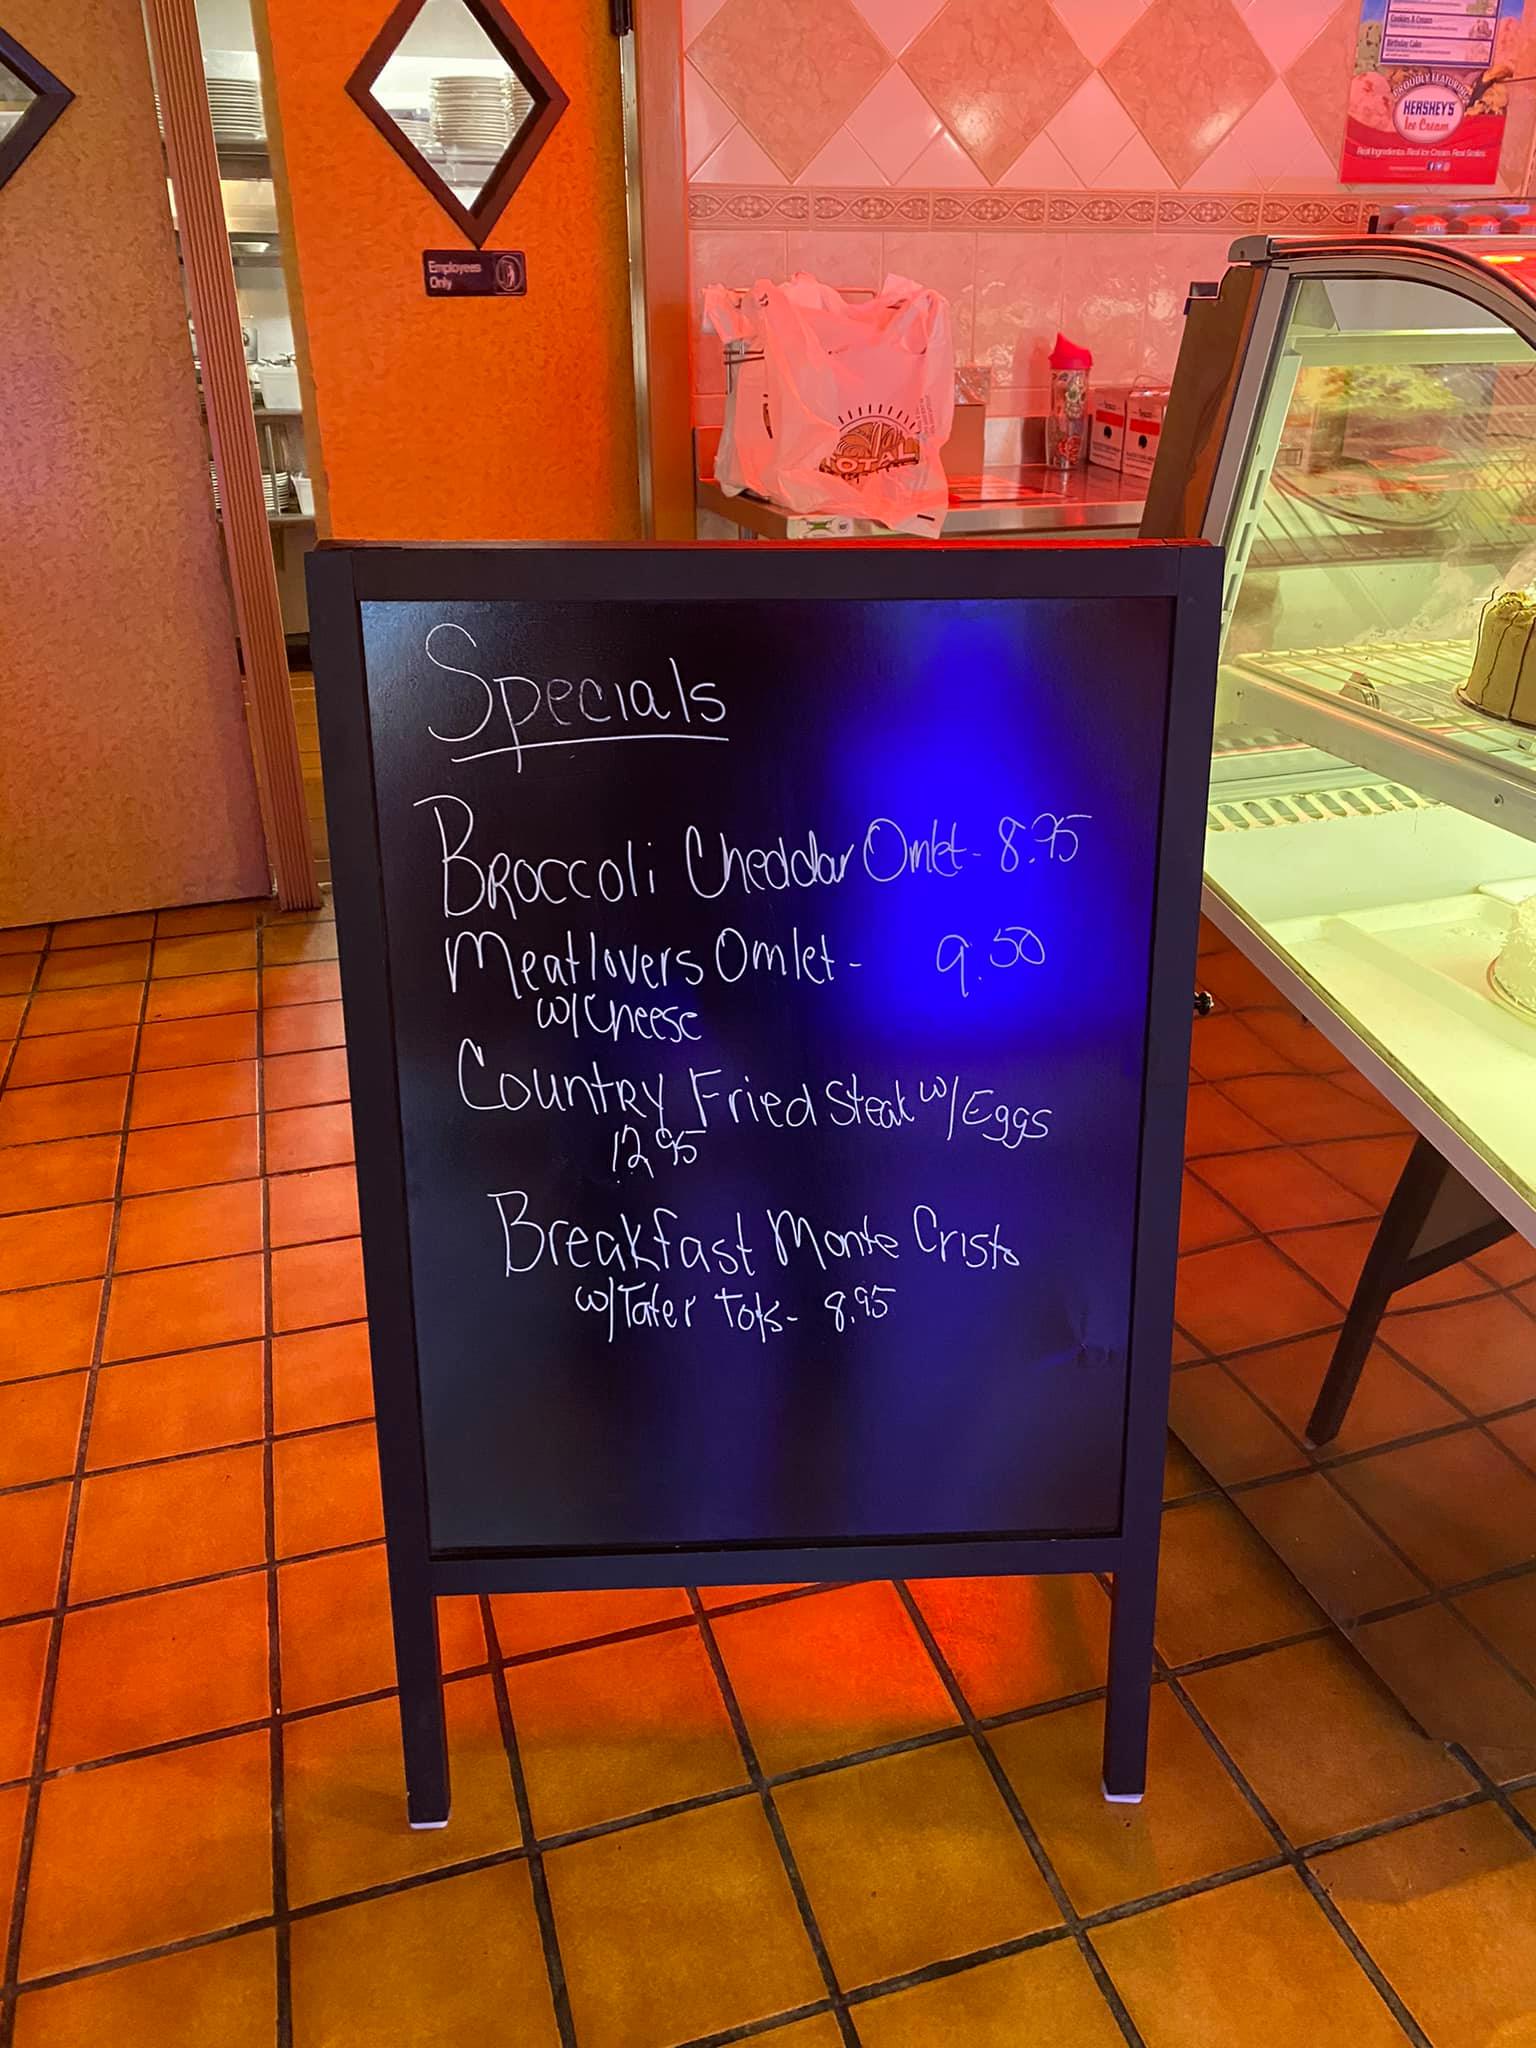 Cookies & Cream
Birthday Cake
PROUDLY FEATURING
HERSHEY'S
Ice Cream
Real Ingredients. Real Ice Cream. Real Smiles.
Employees
Only
OTAL
Specials
Broccoli Cheddar Omlet - 8.95
Meatlovers Omlet - 9.50
w/Cheese
Country Fried Steak w/Eggs
12.95
Breakfast Monte Cristo
w/Tater Tots - 8.95